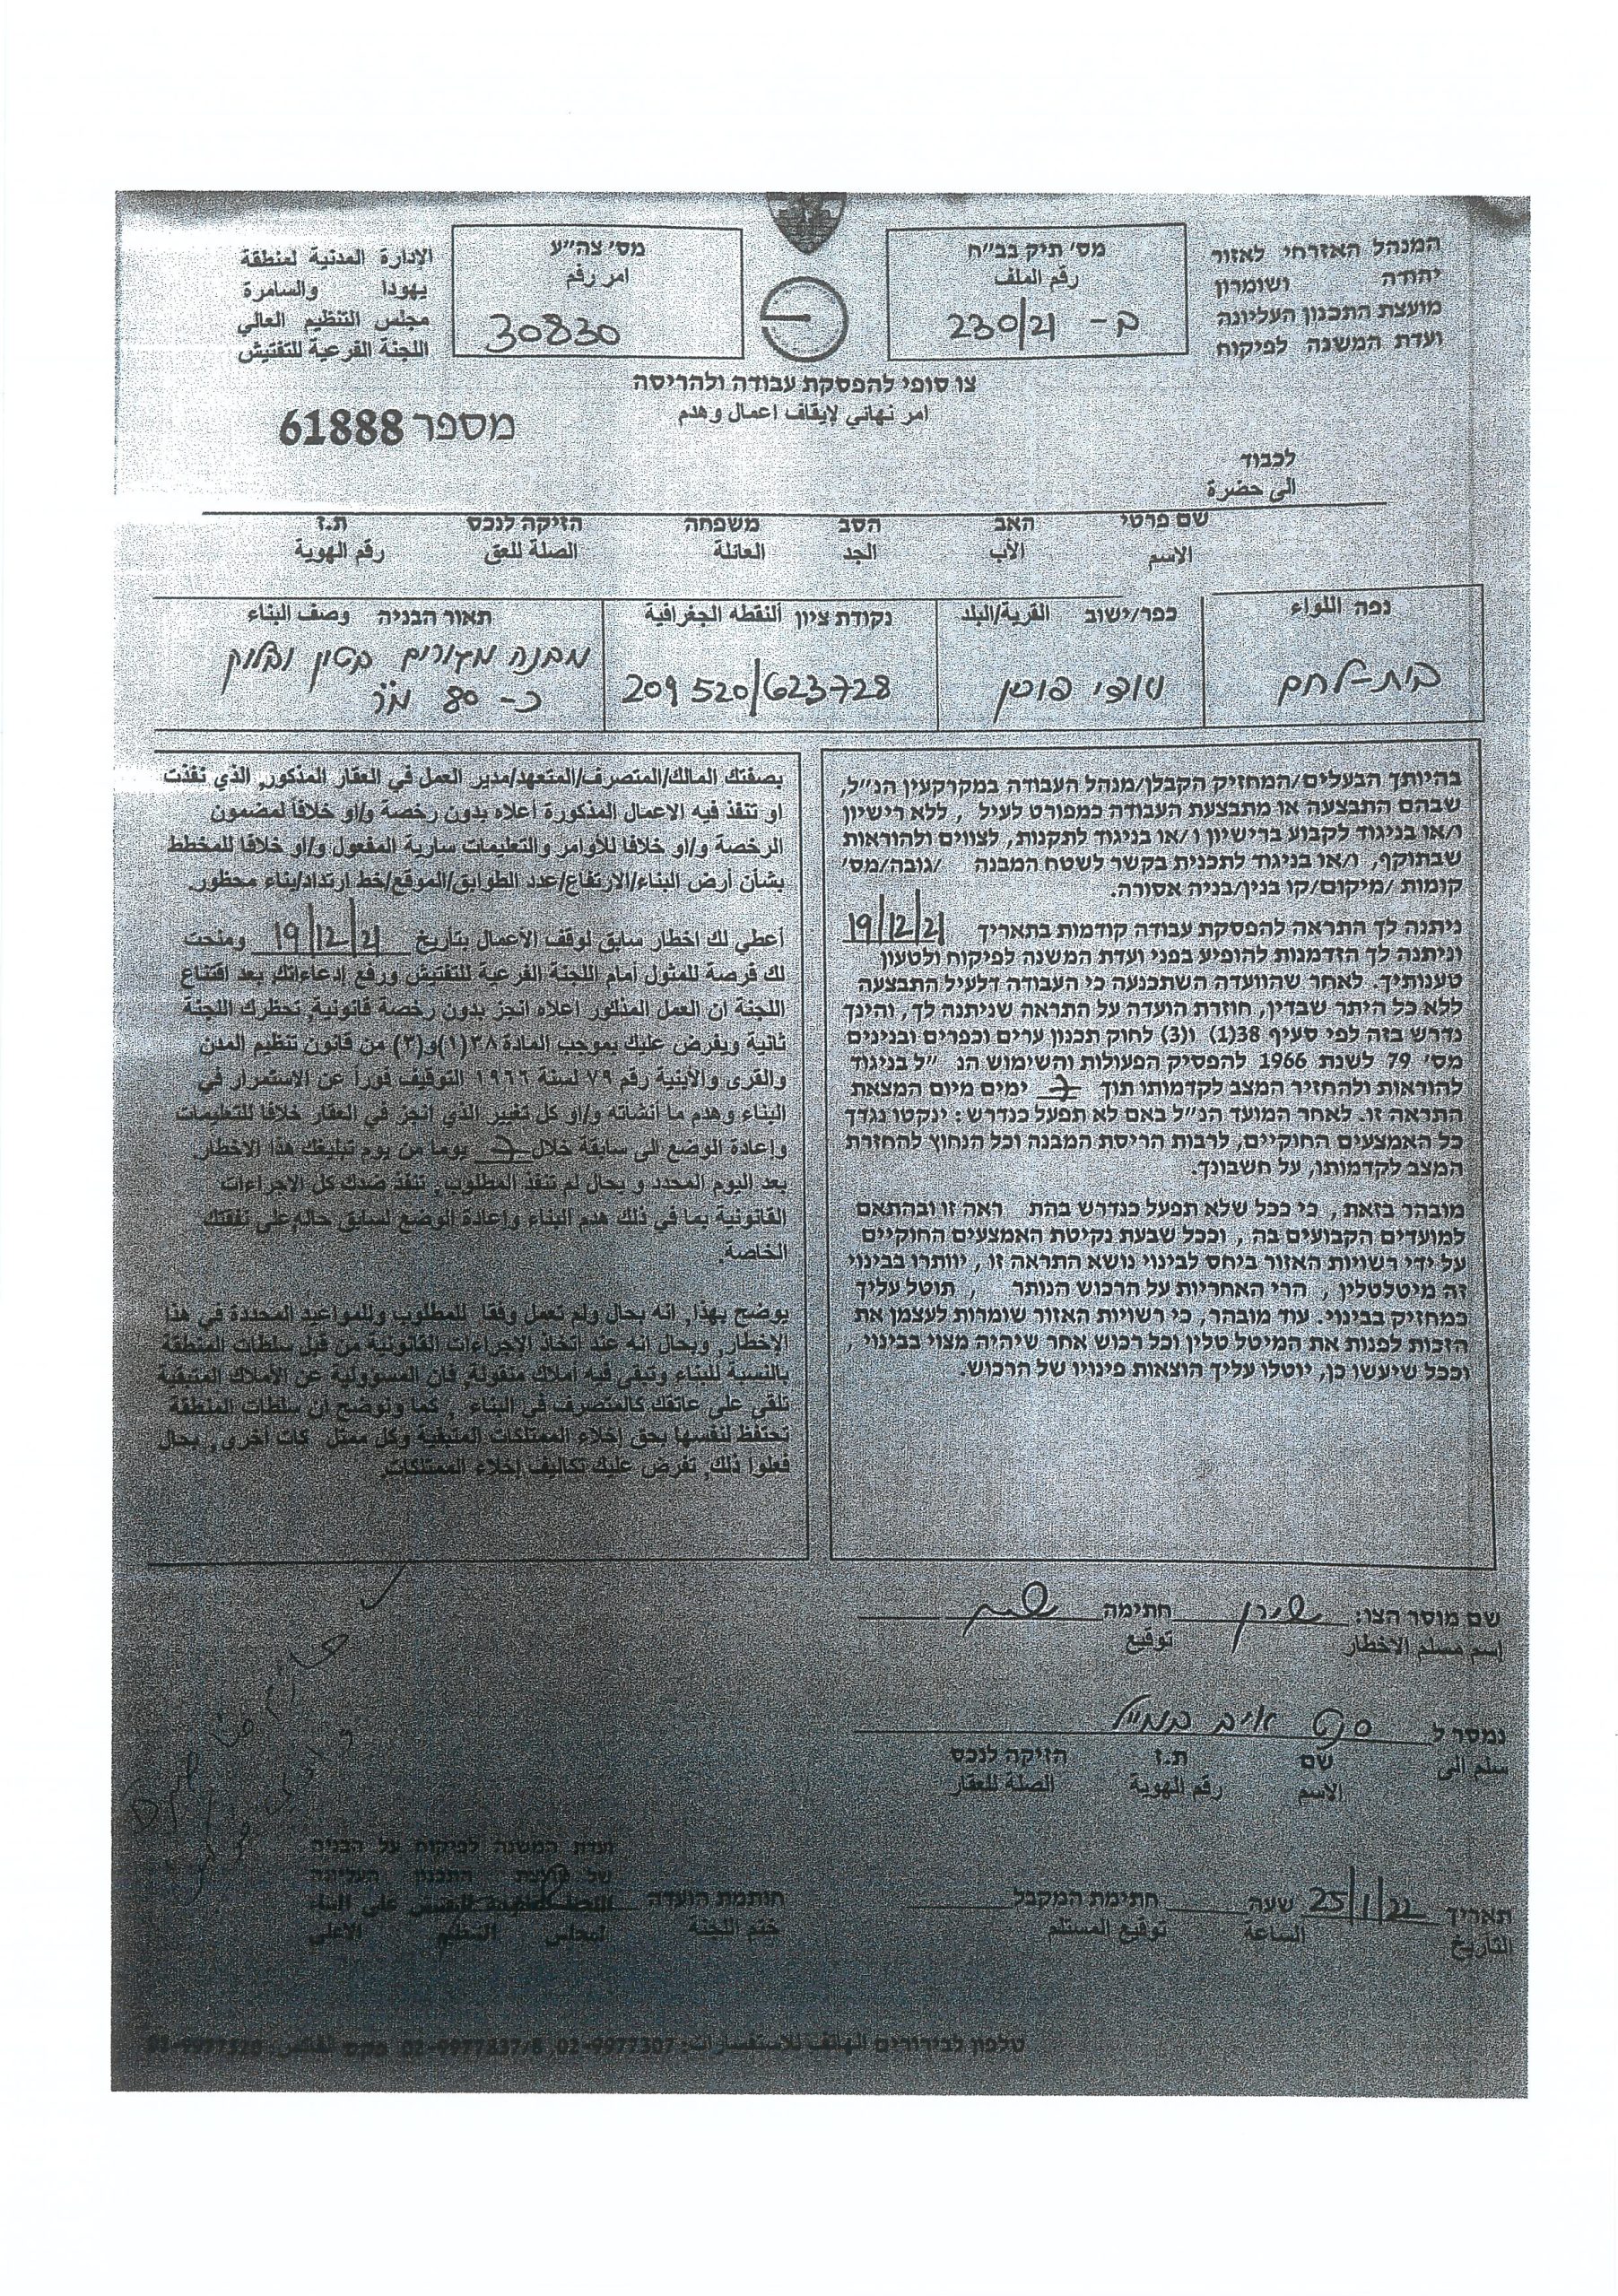 המנהל האזרחי לאזור
יהודה ושומרון
מועצת התכנון העליונה
ועדת המשנה לפיקוח
מס׳ תיק בב״ח
رقم الملف
ב- 230/21
מס׳ צה״ע
امر رقم
30830
الإدارة المدنية لمنطقة
يهودا والسامرة
مجلس التنظيم العالي
اللجنة الفرعية للتفتيش
צו סופי להפסקת עבודה ולהריסה
امر نهائي لإيقاف اعمال وهدم
מספר 61888
לכבוד
الى حضرة
שם פרטי האב הסב משפחה הזיקה לנכס ת.ז
الاسم الأب الجد العائلة الصلة للعق رقم الهوية
نفه اللواء
בית-לחם
כפר/ישוב القرية/البلد
ואדי פוכין
נקודת ציון النقطه الجغرافية
209520/623728
תאור הבניה وصف البناء
מבנה מגורים בטון ובלוק
כ- 80 מ"ר
בהיותך הבעלים/המחזיק הקבלן/מנהל העבודה במקרקעין הנ״ל,
שבהם התבצעה או מתבצעת העבודה כמפורט לעיל , ללא רישיון
ו/או בניגוד לקבוע ברישיון ו/או בניגוד לתקנות, לצווים ולהוראות
שבתוקף, ו/או בניגוד לתכנית בקשר לשטח המבנה /גובה/מס׳
קומות /מיקום/קו בנין/בניה אסורה.
ניתנה לך התראה להפסקת עבודה קודמות בתאריך 19/12/21
וניתנה לך הזדמנות להופיע בפני ועדת המשנה לפיקוח ולטעון
טענותיך. לאחר שהוועדה השתכנעה כי העבודה דלעיל התבצעה
ללא כל היתר שבדין, חוזרת הועדה על התראה שניתנה לך, והינך
נדרש בזה לפי סעיף 38(1) ו(3) לחוק תכנון ערים וכפרים ובנינים
מס׳ 79 לשנת 1966 להפסיק הפעולות והשימוש הנ ״ל בניגוד
להוראות ולהחזיר המצב לקדמותו תוך 7 ימים מיום המצאת
התראה זו. לאחר המועד הנ״ל באם לא תפעל כנדרש: ינקטו נגדך
כל האמצעים החוקיים, לרבות הריסת המבנה וכל הנחוץ להחזרת
המצב לקדמותו, על חשבונך.
מובהר בזאת, כי ככל שלא תפעל כנדרש בהת ראה זו ובהתאם
למועדים הקבועים בה, וככל שבעת נקיטת האמצעים החוקיים
על ידי רשויות האזור ביחס לבינוי נושא התראה זו, יוותרו בבינוי
זה מיטלטלין, הרי האחריות על הרכוש הנותר , תוטל עליך
כמחזיק בבינוי. עוד מובהר, כי רשויות האזור שומרות לעצמן את
הזכות לפנות את המיטל טלין וכל רכוש אחר שיהיה מצוי בבינוי,
וככל שיעשו כן, יוטלו עליך הוצאות פינויו של הרכוש.
بصفتك المالك/المتصرف/المتعهد/مدير العمل في العقار المذكور, الذي نفذت
او تنفذ فيه الاعمال المذكورة أعلاه بدون رخصة و/او خلافا لمضمون
الرخصة و/او خلافا للأوامر والتعليمات سارية المفعول و/او خلافا للمخطط
بشأن أرض البناء/الارتفاع/عدد الطوابق/الموقع/خط ارتداد/بناء محظور.
أعطي لك اخطار سابق لوقف الاعمال بتاريخ 19/12/21 ومنحت
لك فرصة للمثول أمام اللجنة الفرعية للتفتيش ورفع إدعاءاتك بعد اقتناع
اللجنة ان العمل المذكور اعلاه انجز بدون رخصة قانونية, تحظرك اللجنة
ثانية ويفرض عليك بموجب المادة ٣٨(١)و(٣) من قانون تنظيم المدن
والقرى والأبنية رقم ٧٩ لسنة ١٩٦٦ التوقيف فوراً عن الاستمرار في
البناء وهدم ما انشاته و/او كل تغيير الذي انجز في العقار خلافا للتعليمات
وإعادة الوضع الى سابقة خلال 7 يوما من يوم تبليغك هذا الاخطار.
بعد اليوم المحدد و بحال لم تنفذ المطلوب, تنفذ ضدك كل الاجراءات
القانونية بما في ذلك هدم البناء وإعادة الوضع لسابق حاله, على نفقتك
الخاصة.
يوضح بهذا, انه بحال ولم تعمل وفقا للمطلوب وللمواعيد المحددة في هذا
الاخطار, وبحال انه عند اتخاذ الاجراءات القانونية من قبل سلطات المنطقة
بالنسبة للبناء وتبقى فيه املاك منقولة, فان المسؤولية عن الأملاك المتبقية
تلقى على عاتقك كالمتصرف في البناء , كما ونوضح ان سلطات المنطقة
تحتفظ لنفسها بحق إخلاء الممتلكات المتبقية وكل ممتل كات اخرى, بحال
فعلوا ذلك, تفرض عليك تكاليف إخلاء الممتلكات.
שם מוסר הצו: חתימה
إسم مسلم الاخطار توقيع
נמסר ל
سلم الى
שם ת.ז הזיקה לנכס
الاسم رقم الهوية الصلة للعقار
ועדת המשנה לפיקוח על הבניה
של מועצת התכנון העליונה
على البناء
لمجلس التنظيم الأعلى
תאריך 25/1/22 שעה חתימת המקבל חותמת הועדה
التاريخ الساعة توقيع المستلم ختم اللجنة
טלפון לבירורים الهاتف للاستفسارات: 02-9977307